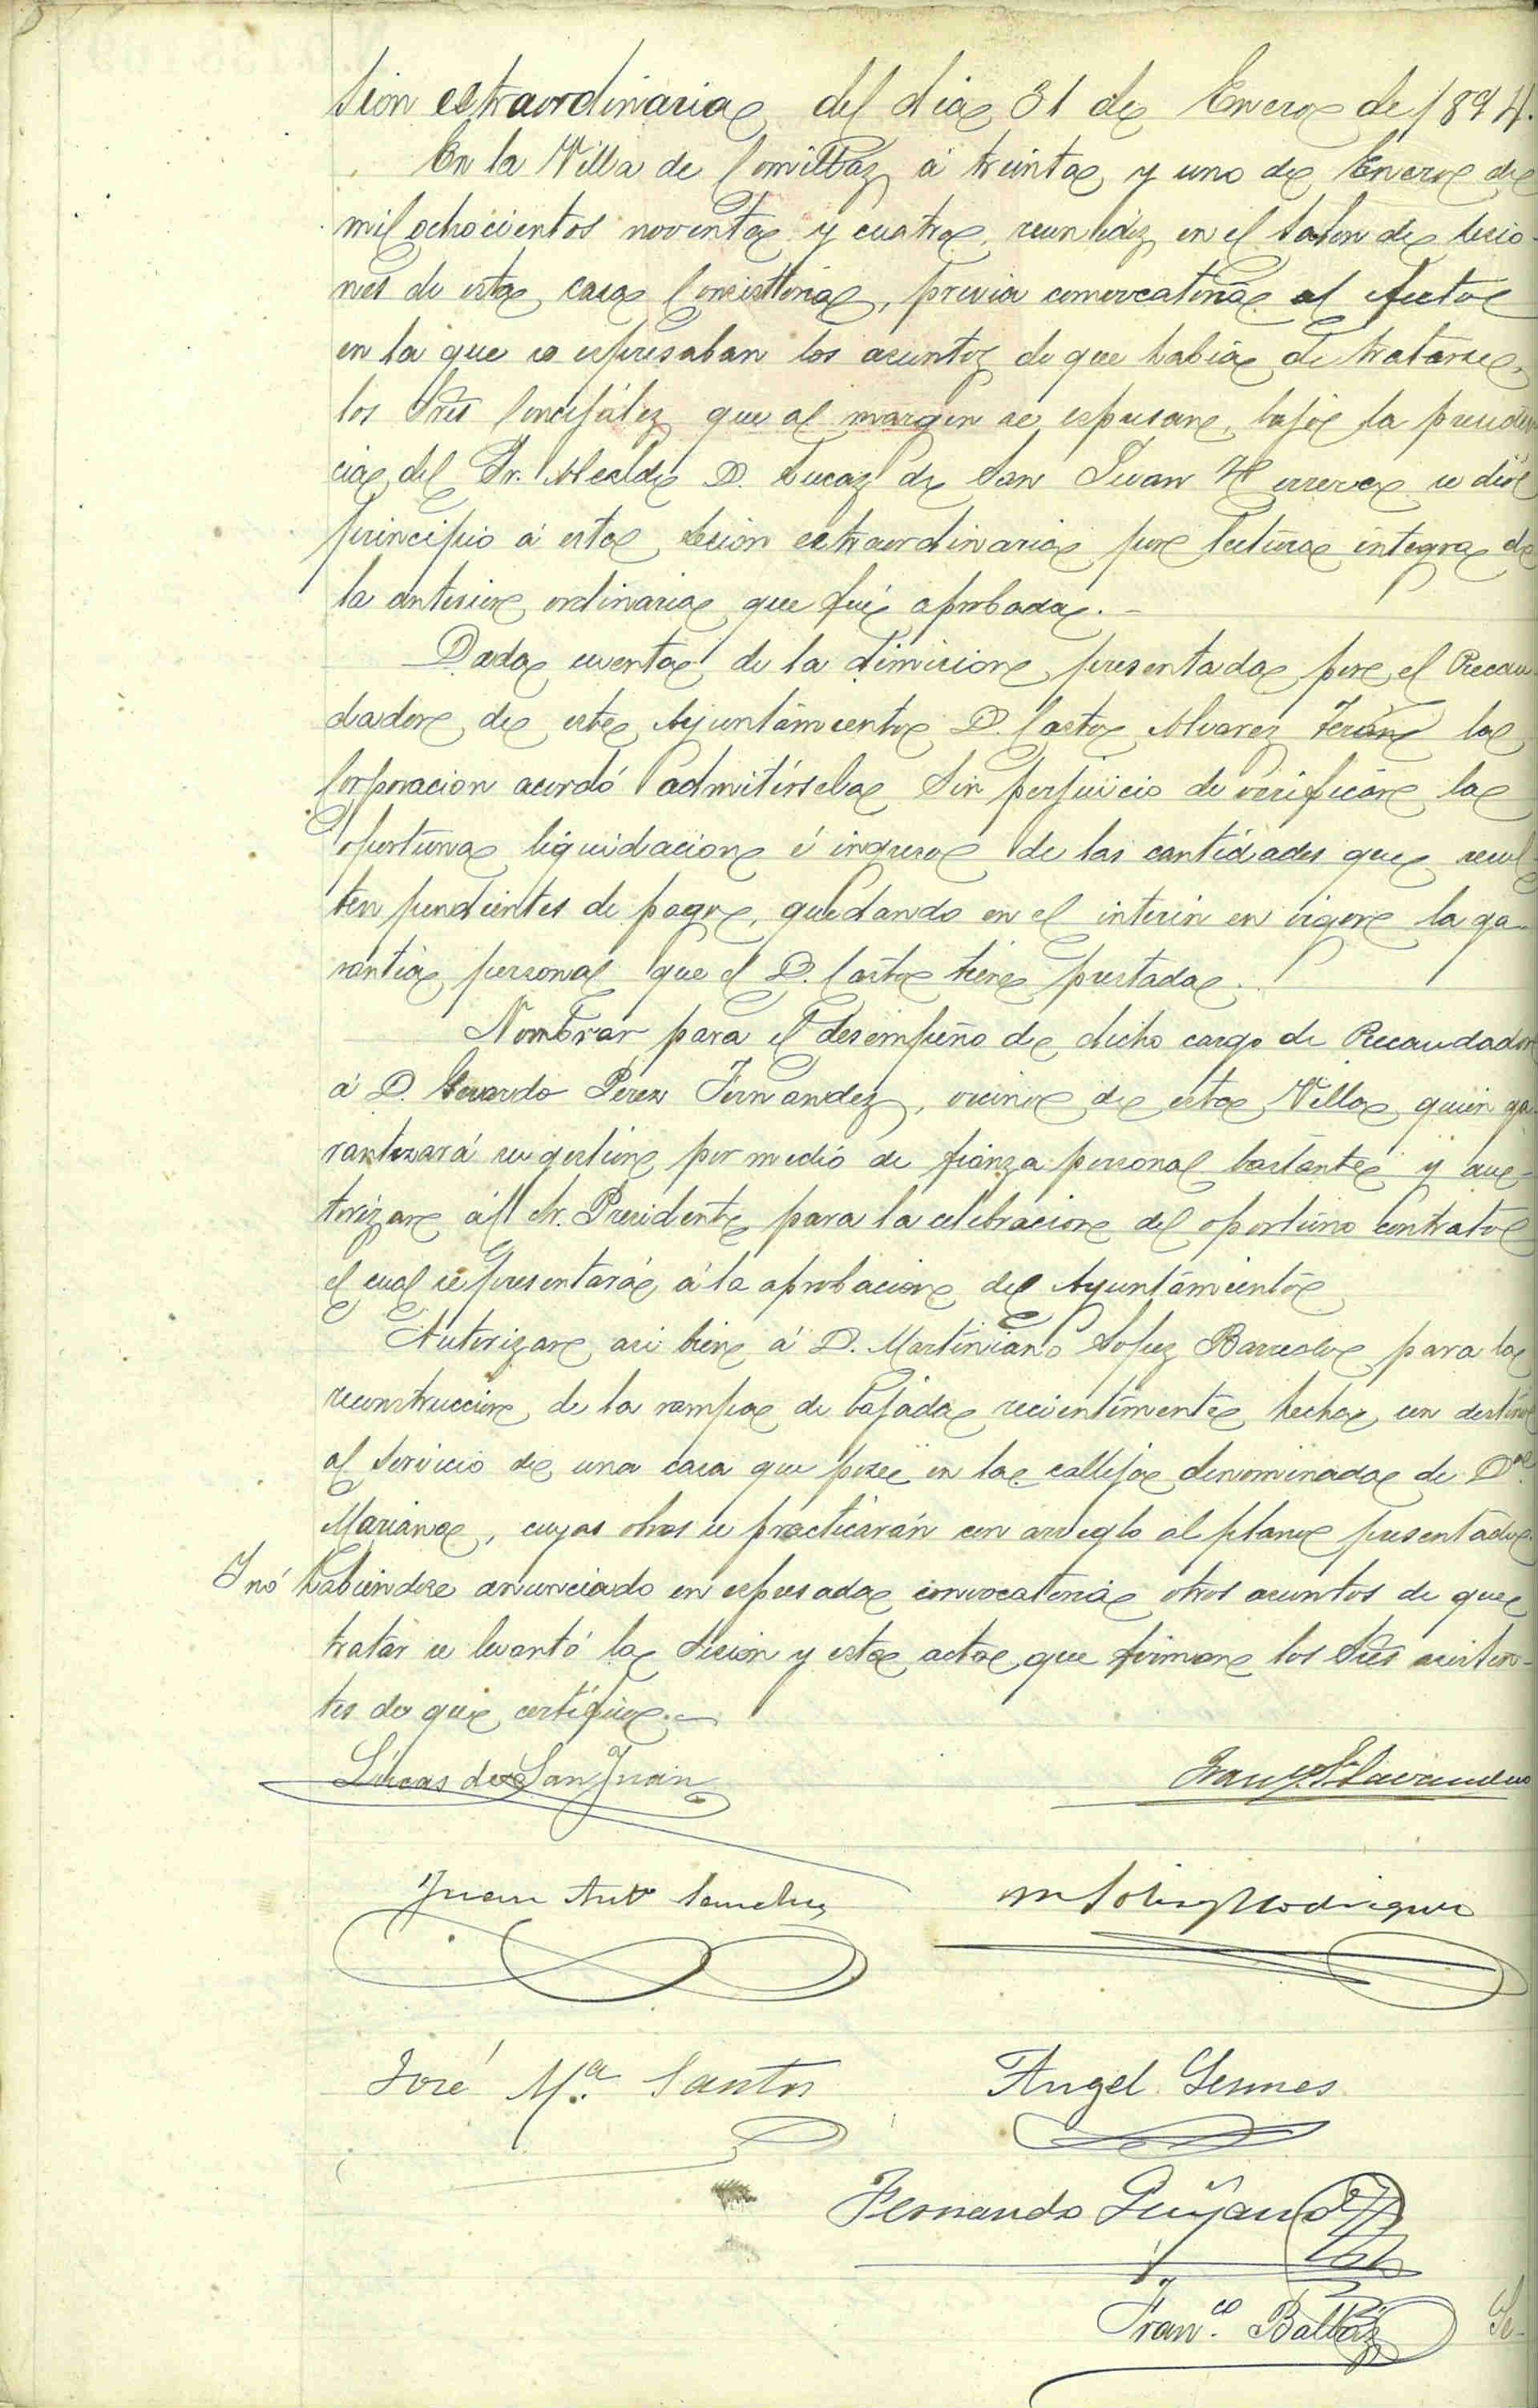 sion estraordinaria del dia 31 de Enero de 1894.
En la Villa de Comillas á treinta y uno de Enero de
mil ochocientos noventa y cuatro, reunidos en el Salon de sesio-
nes de esta casa Consistorial, previa convocatoria al efecto
en la que se espresaban los asuntos de que había de tratarse,
los Sres Concejales que al margen se espresan, bajo la presiden
cia del Sr. Alcalde D. Lucas de San Juan Herrera se dió
principio á esta sesion estraordinaria por lectura integra de
la anterior ordinaria que fué aprobada.-
Dada cuenta de la dimision presentada por el Recau-
dador de este Ayuntamiento D. Castor Alvarez Terán la
Corporacion acordó admitírsela sin perjuicio de verificar la
oportuna liquidacion é ingreso de las cantidades que resul
ten pendientes de pago, quedando en el interin en vigor la ga-
rantía personal que el D. Castor tiene prestada.
Nombrar para el desempeño de dicho cargo de Recaudador
á D. Gerardo Pérez Fernandez, vecino de esta Villa quien ga
rantizará su gestion por medio de fianza personal bastante y au-
torizar al Sr. Presidente para la celebracion del oportuno contrato
el cual se presentará á la aprobacion del Ayuntamiento
Autorizar asi bien á D. Martiniano Lopez Barreda para la
reconstruccion de la rampa de bajada recientemente hecha con destino
al servicio de una casa que posee en la calleja denominada de Dª
Mariana, cuyas obras se practicarán con arreglo al plano presentado.
Y nó habiendose anunciado en espresada convocatoria otros asuntos de que
tratar se levantó la sesion y esta acta que firman los Sres asisten-
tes de que certifico.-
Lúcas de San Juan
Juan Antº Sanchez
M Solis Rodriguez
José Mª Santos
Angel Gesmes
Fernando
Franco. Balbás
Se-